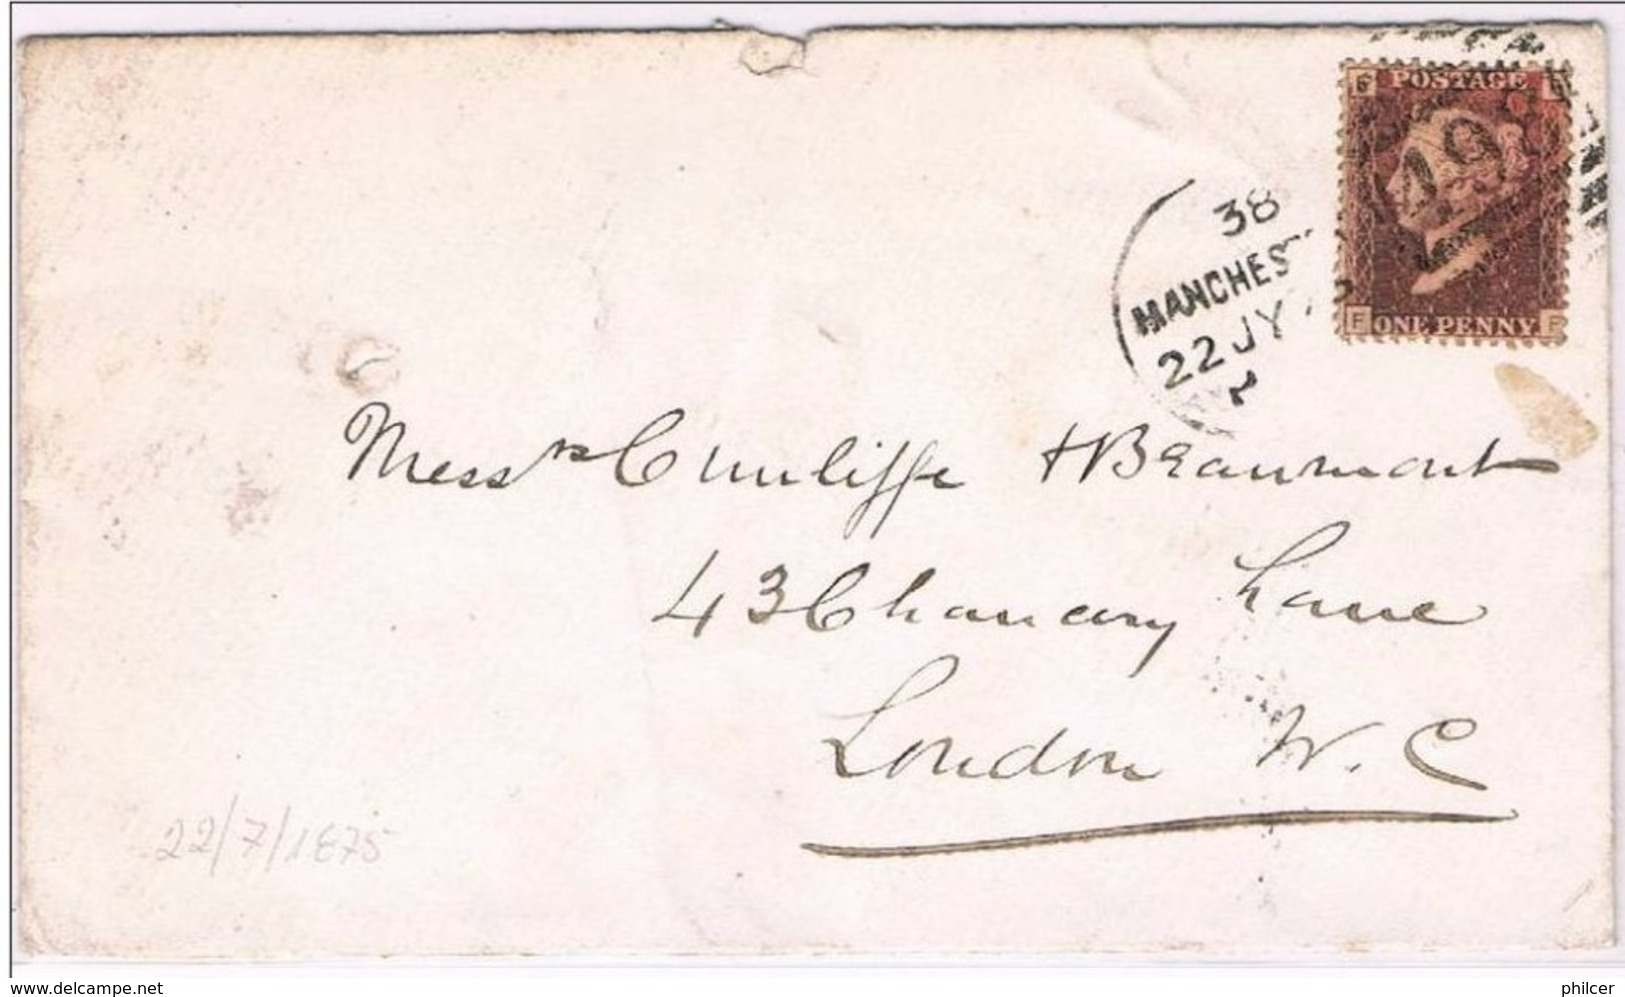 POSTAGE
498
38
MANCHES
22 JY
F F
ONE PENNY
Messrs Cunliffe & Beaumont
43 Chancery Lane
London W. C
22/7/1875
www.delcampe.net
philcer